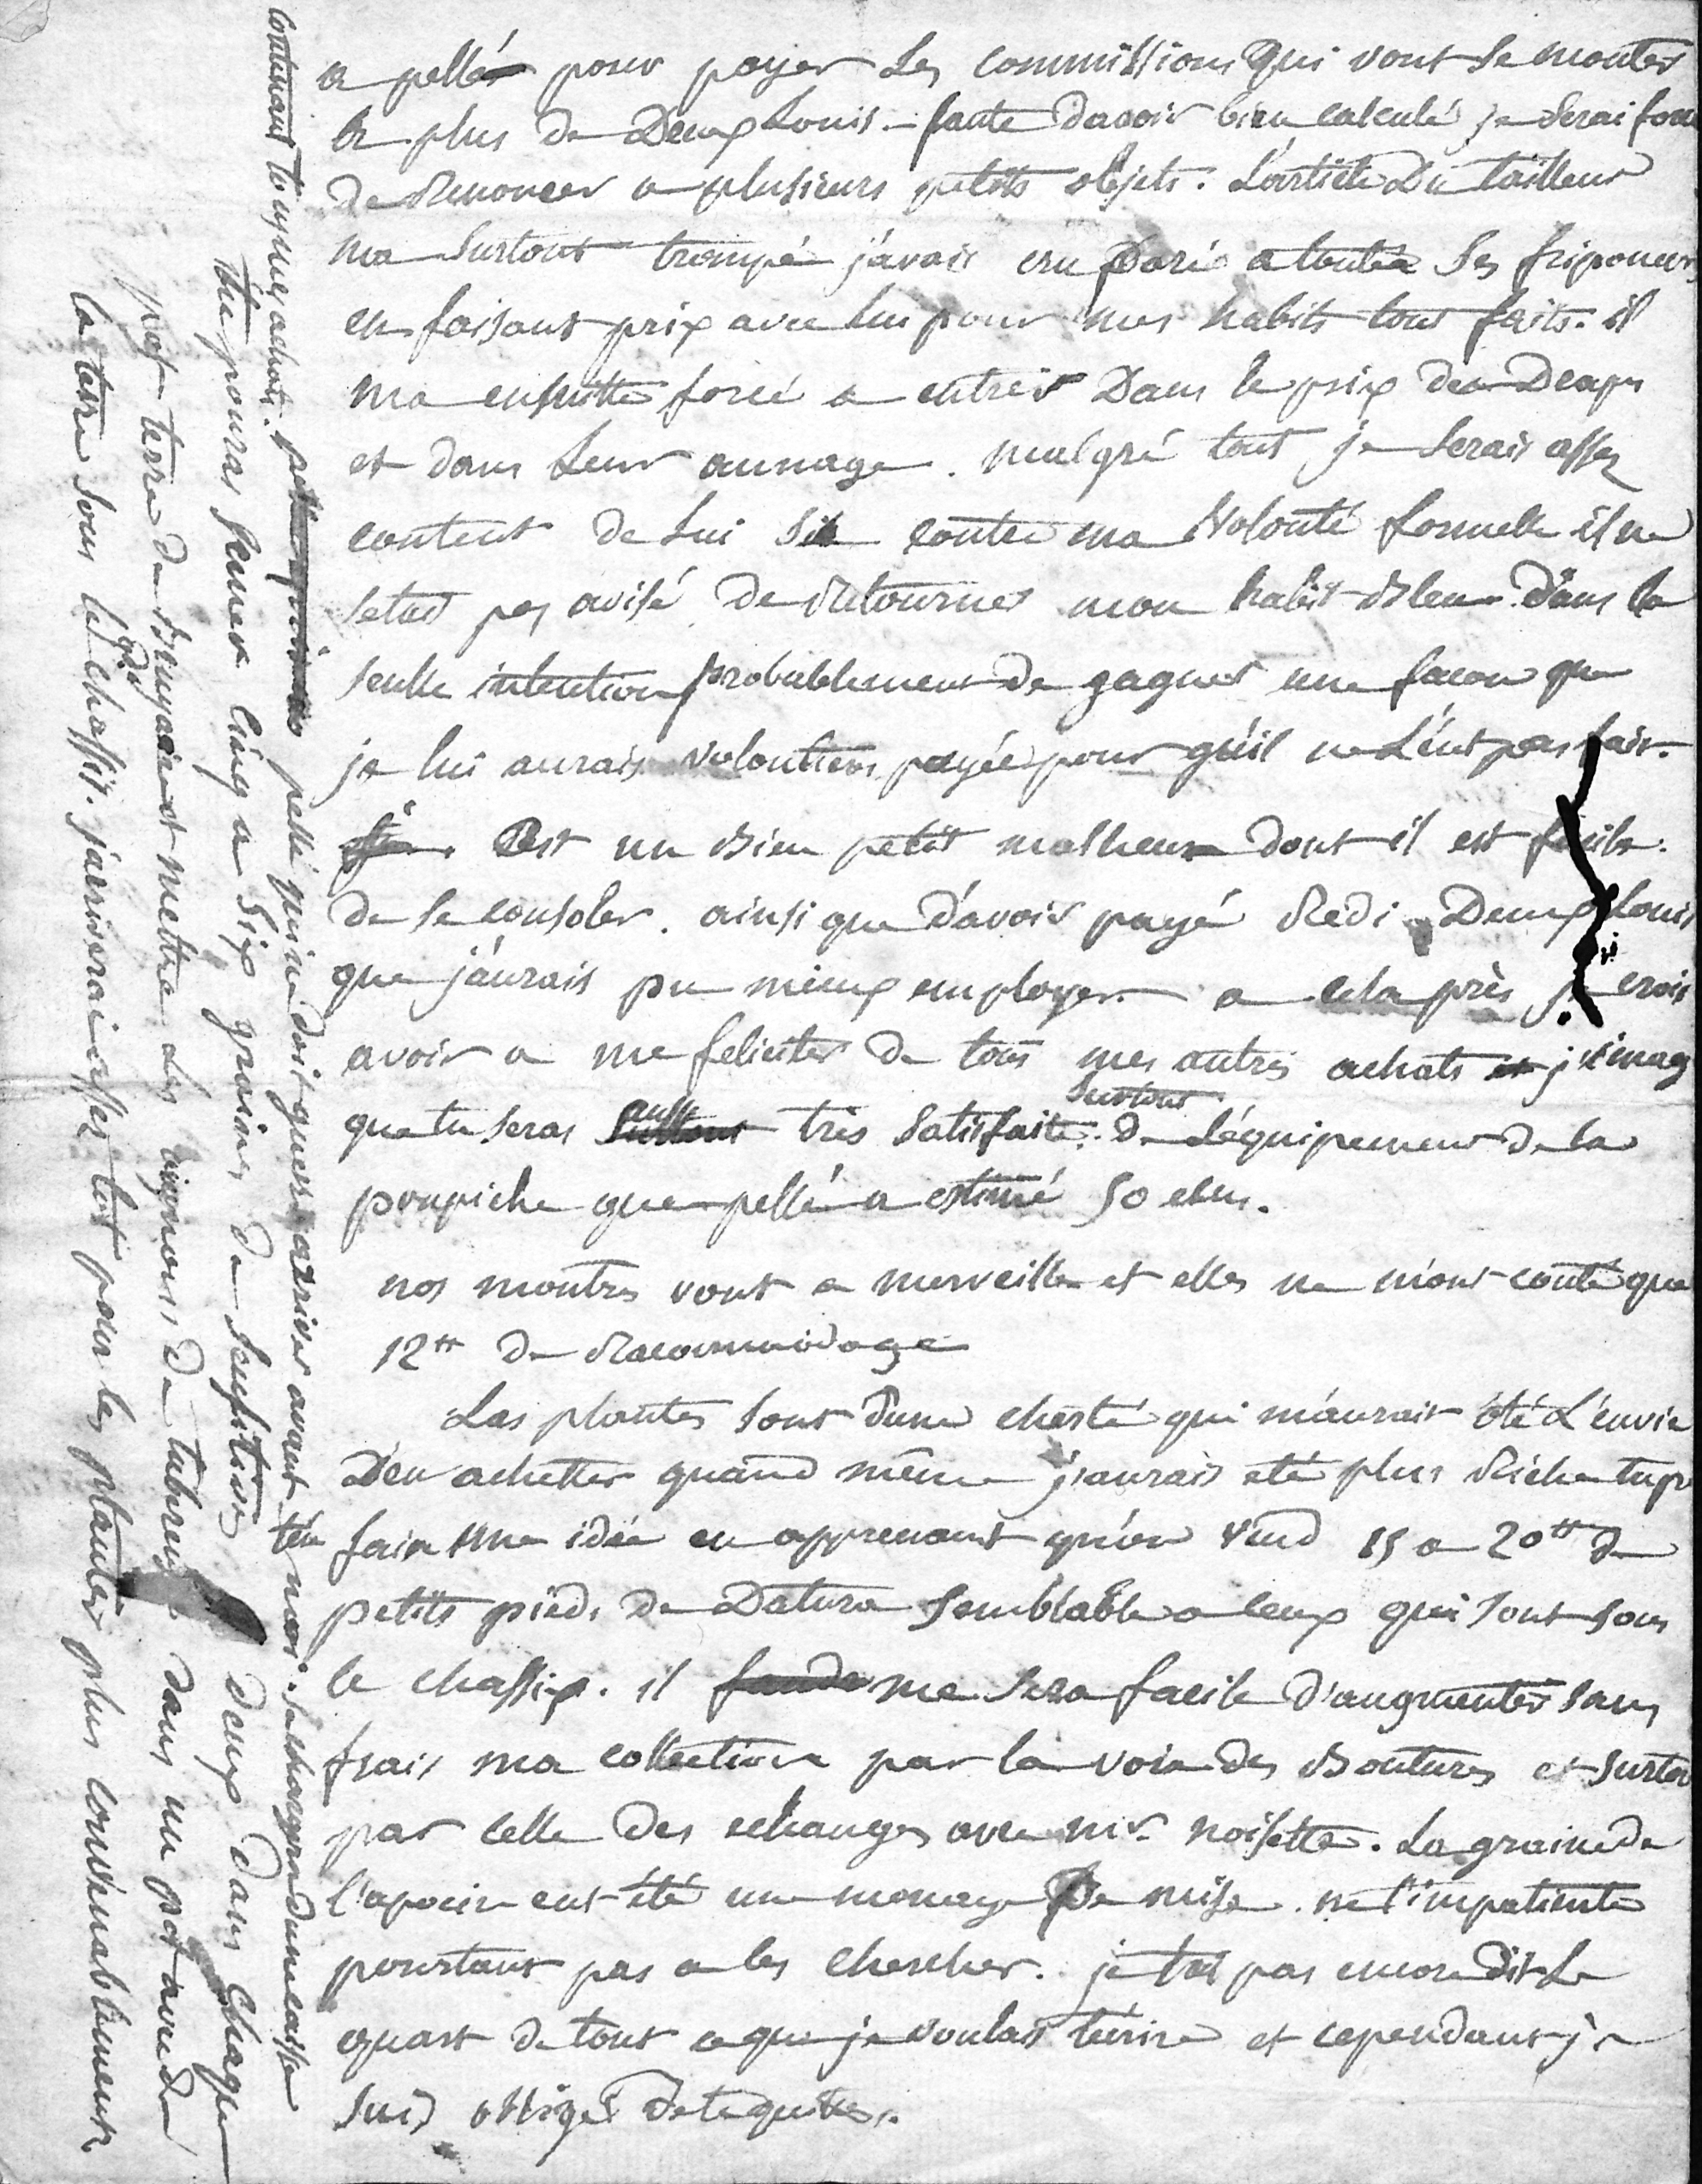 a pellé pour payer les commissions qui vont se monter
a plus de Deux Louis. faute davoir bien calculé je serai forcé
de Renoncer a plusieurs petits objets. L'article Du tailleur
ma surtout trompé j'avais cru Paré a toutes ses friponeries
en faisant prix avec lui pour mes habits tout faits. il
ma ensuitte forcé a entrer Dans le prix des Draps
et dans Leur aunage. malgré tout je serais assez
content de lui si contre ma Volonté formelle il ne
setait pas avisé de Retourner mon habit Bleu Dans la
seulle intention probablement de gagner une facon que
je lui aurais volontiers payée pour quil ne L'eut pas fait.
C'est un Bien petit malheur dont il est facile
de se consoler. ainsi que d'avoir payé Redi Deux Louis
que j'aurais pu mieux employer. a cela près je crois
avoir a me feliciter de tous mes autres achats j'imag
que tu seras aussi très satisfaite surtout de L'équipement de la
poupiche que pellé a estimé 50 ecus.
nos montres vont a merveille et elles ne m'ont couté que
12tt de Racommodage
Les plantes sont d'une cherté qui m'aurait ôté L'envie
D'en achetter quand même j'aurais eté plus Riche tu pe
t'en faire une idée en apprenant qu'on vend 15 a 20tt de
petits pieds de Datura semblable a ceux qui sont sous
le chassix. il me sera facile d'augmenter sans
frais ma collection par la voie des Boutures et surtou
par celle des echanges avec mr noisette. La graine de
l'apocin eut été une monaye De mise. ne t'impatiente
pourtant pas a les chercher. je t'ai pas encore dit Le
quart de tout ce que je voulais t'écrire et cependant je
suis obligé de te quitter.
contenant toujours achats. pellé qui ne doit guere arriver avant moi. se chargera d'une caisse
tu pouras semer Cinq a six graines de sensitive deux dans chaque
pot terre de Bruyaire et mettre des oignons de tubereuse dans un pot avec de
la terre sous le chassis. j'arriverai assez tôt pour les planter plus convenablement